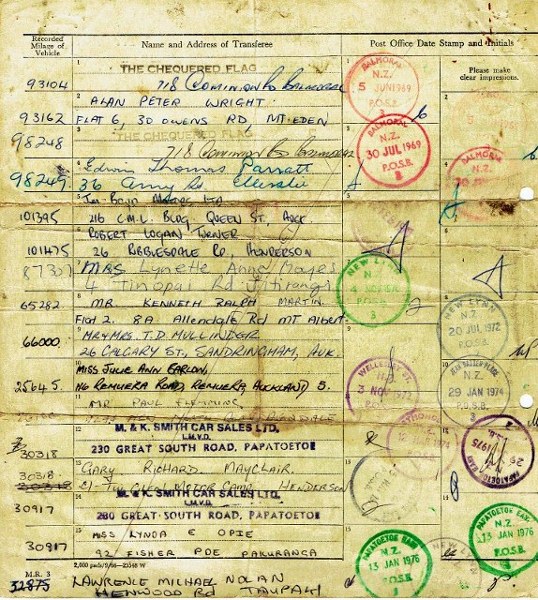 Recorded Milage of Vehicle
Name and Address of Transferee
Post Office Date Stamp and Initials
Please make clear impressions.
1
THE CHEQUERED FLAG
93104
718 Dominion Rd Balmoral
BALMORAL N.Z. 5 JUN 1969 P.O.S.B.
2
ALAN PETER WRIGHT
93162
FLAT 6, 30 OWENS RD MT. EDEN
BALMORAL N.Z. 30 JUL 1969 P.O.S.B. 3
3
THE CHEQUERED FLAG
98248
718 Dominion Rd
4
Edwin Thomas Parratt
98249
36 Ellerslie
BALMORAL N.Z.
5
MOTORS LTD
101395
216 C.M.L. BLDG, QUEEN ST, AUCK.
6
ROBERT LOGAN TURNER
101475
26 RIBBLESDALE RD, HENDERSON
7
87307
MRS Lynette Anne Hayes
4 Tinopai Rd Titirangi
NEW LYNN N.Z. 3
8
65282
MR. KENNETH RALPH MARTIN.
FLAT 2. 8A Allendale Rd MT ALBERT
NEW LYNN N.Z. 20 JUL 1972 P.O.S.B.
9
66000
MR & MRS. T.D. MULLINDER
26 CALGARY ST., SANDRINGHAM, AUK.
WELLESLEY ST. 3 NOV 1972
10
25645
MISS JULIE ANN
116 REMUERA ROAD, REMUERA, AUCKLAND 5.
N.Z. 29 JAN 1974 P.O.S.B.
11
MR PAUL FLEMMING
12
M. & K. SMITH CAR SALES LTD.
L.M.V.D.
30318
230 GREAT SOUTH ROAD, PAPATOETOE
1975
13
GARY RICHARD MAYCLAIR
30318
MOTOR CAMP HENDERSON
14
M. & K. SMITH CAR SALES LTD.
L.M.V.D.
30917
230 GREAT SOUTH ROAD, PAPATOETOE
PAPATOETOE EAST N.Z. 13 JAN 1976 P.O.S.B.
15
MISS LYNDA E OPIE
30917
92 FISHER PDE PAKURANGA
PAPATOETOE EAST N.Z. 13 JAN 1976
M.R. 3
32875
LAWRENCE MICHAEL NOLAN
HENWOOD RD TAUPAKI